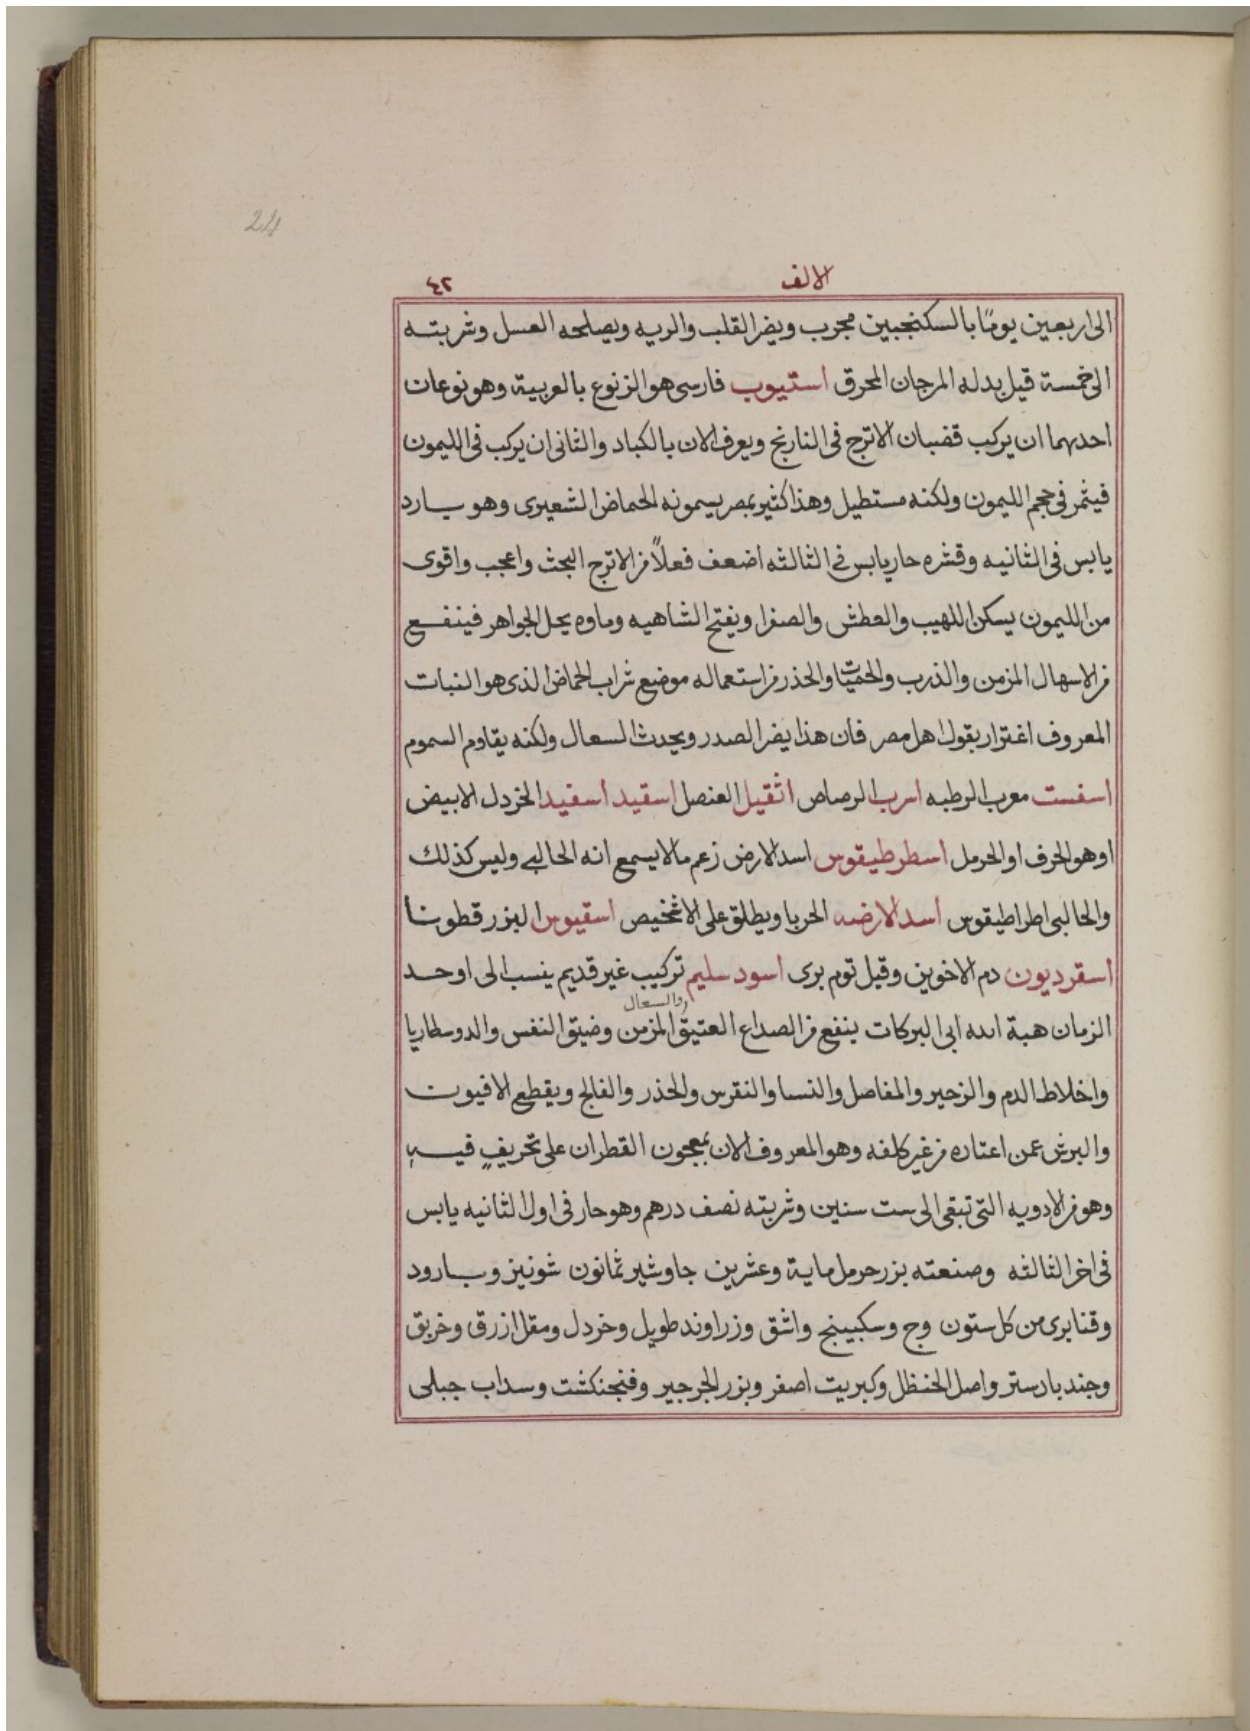 24
الالف
٤٢
الى اربعين يومًا بالسكنجبين مجرب ويضر القلب والريه ويصلحه العسل وشربته
الى خمسة قيل بدله المرجان المحرق استيوب فارسى هو الزنوع بالعربية وهو نوعان
احدهما ان يركب قضبان الاترج فى النارنج ويعرف الان بالكباد والثانى ان يركب فى الليمون
فيثمر فى حجم الليمون ولكنه مستطيل وهذا كثير بمصر يسمونه الحماض الشعيرى وهو بارد
يابس فى الثانيه وقشره حار يابس فى الثالثه اضعف فعلاً من الاترج البحث واعجب واقوى
من الليمون يسكن اللهيب والعطش والصفرا ويفتح الشاهيه وماوه يحل الجواهر فينفع
من الاسهال المزمن والذرب والحميات والحذر من استعماله موضع شراب الحماض الذى هو النبات
المعروف اغترار بقول اهل مصر فان هذا يضر الصدر ويحدث السعال ولكنه يقاوم السموم
اسفست معرب الرطبه اسرب الرصاص اثقيل العنصل اسقيد اسفيد الخردل الابيض
او هو الحرف او الحرمل اسطرطيقوس اسد الارض زعم مالايسمع انه الحالبى وليس كذلك
والحالبى اطراطيقوس اسد الارضه الحربا ويطلق على الاشخيص اسقيوس البزر قطونا
اسقرديون دم الاخوين وقيل توم برى اسود سليم تركيب غير قديم ينسب الى اوحد
والسعال
الزمان هبة الله ابى البركات ينفع من الصداع العتيق المزمن وضيق النفس والدوسطاريا
واخلاط الدم والزحير والمفاصل والنسا والنقرس والخذر والفالج ويقطع الافيون
والبرش عمن اعتاده من غير كلفه وهو المعروف الان بمعجون القطران على تحريفٍ فيه
وهو من الادويه التى تبقى الى ست سنين وشربته نصف درهم وهو حار فى اول الثانيه يابس
فى اخر الثالثه وصنعته بزر حرمل ماية وعشرين جاوشير ثمانون شونيز وبارود
وقنابرى من كل ستون وج وسكبينج واشق وزراوند طويل وخردل ومقل ازرق وخربق
وجندبادستر واصل الحنظل وكبريت اصفر وبزر الجرجير وفنجنكشت وسداب جبلى